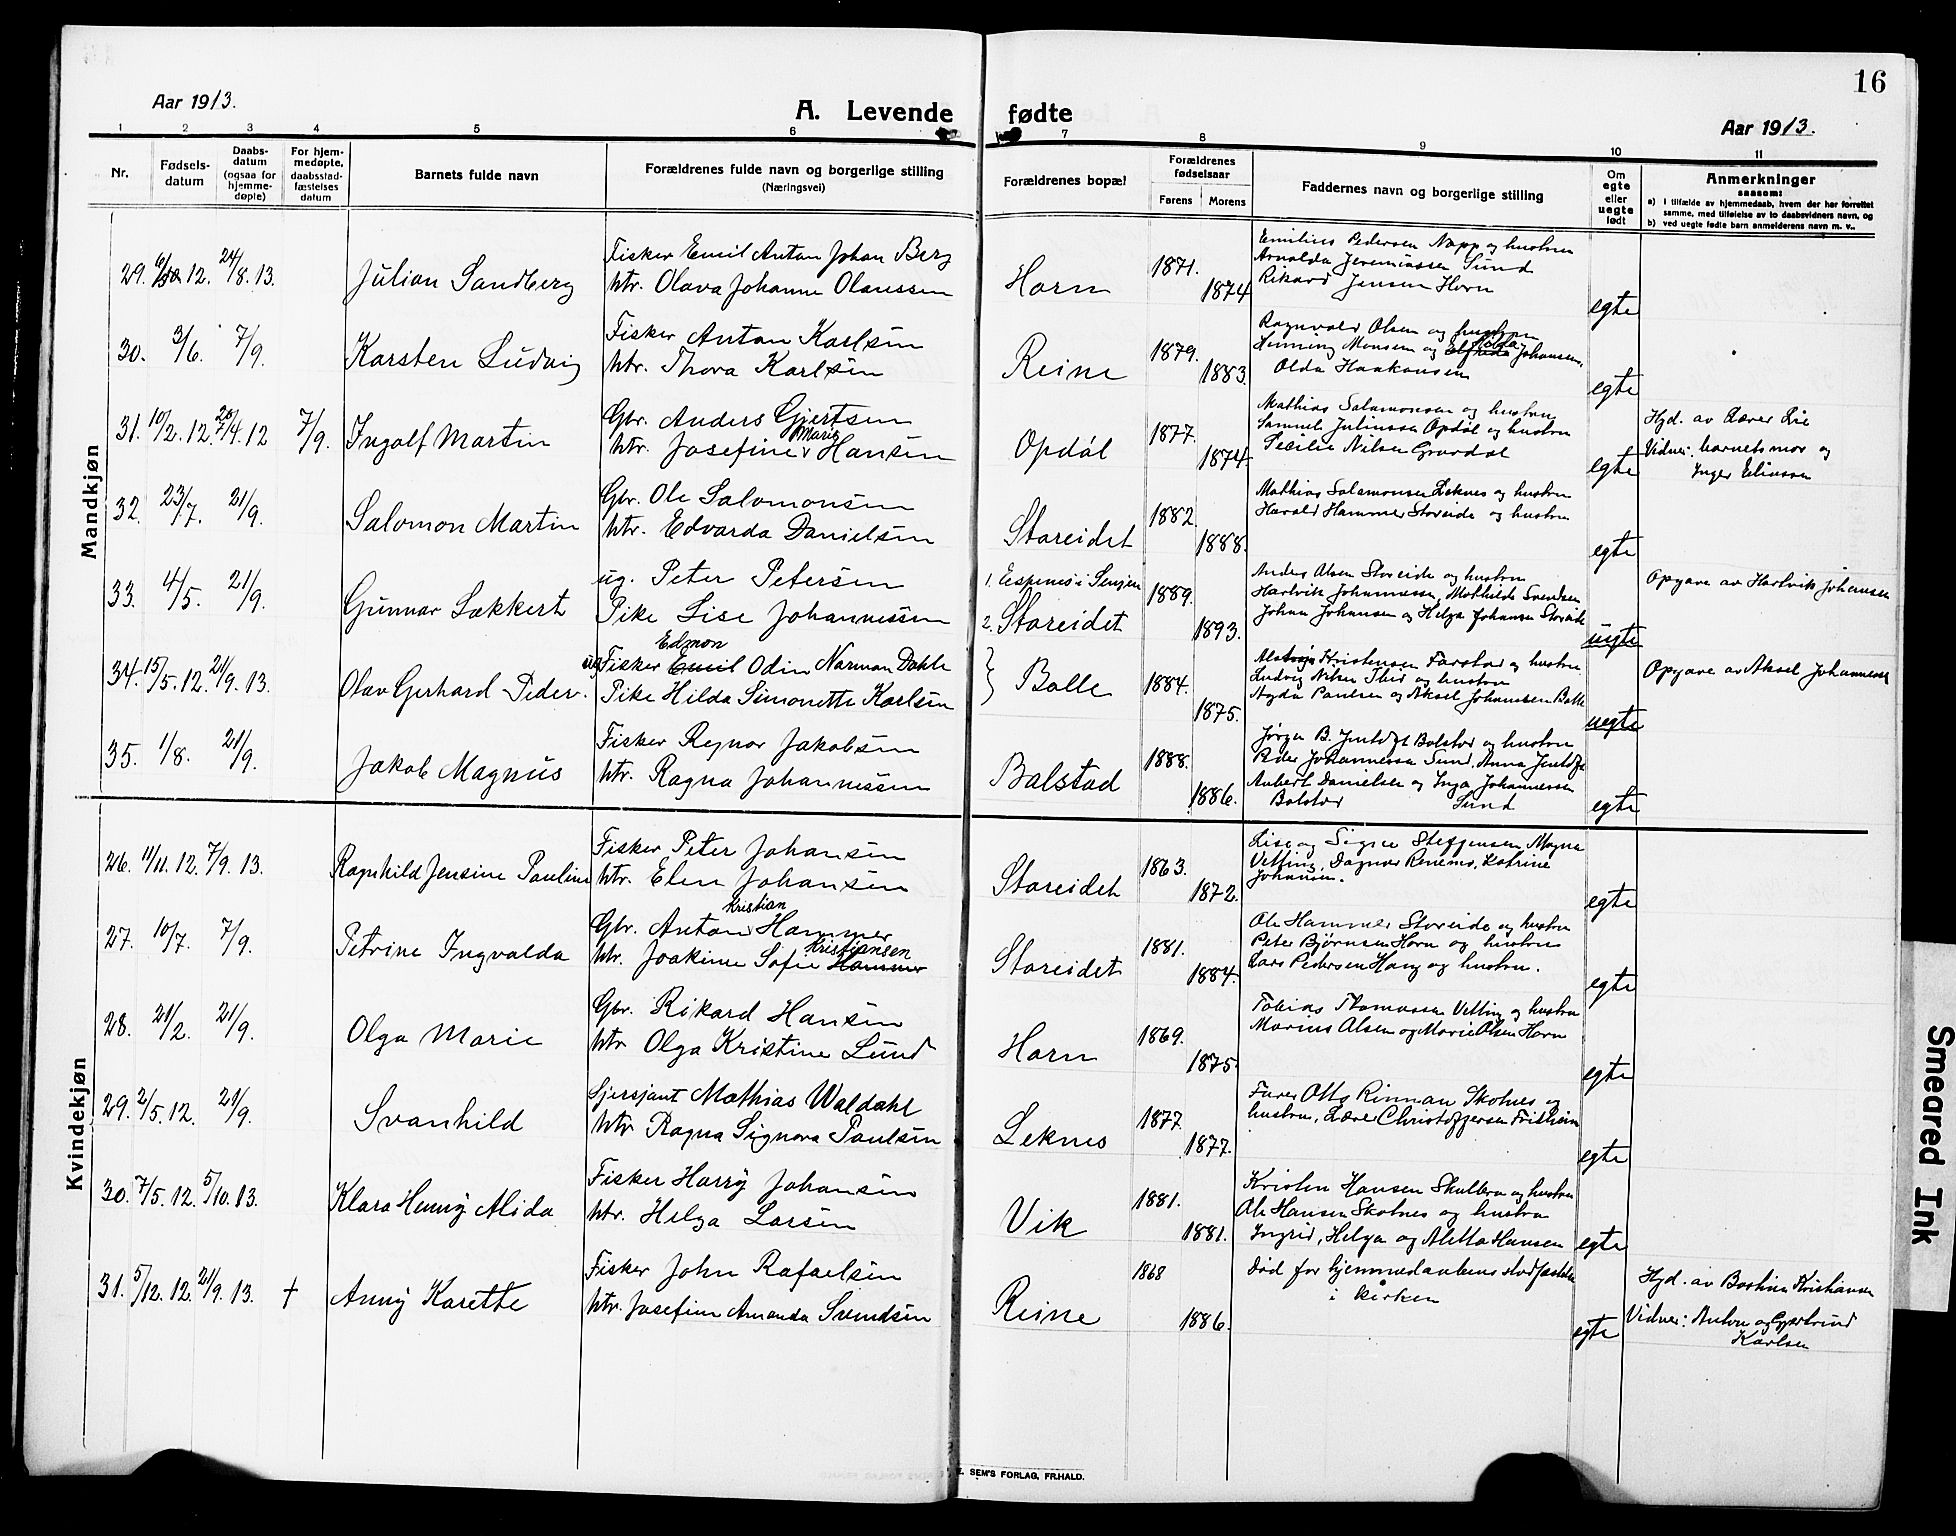 16
Aar 1913.
A. Levende fødte
Aar 1913.
1 2 3 4 5 6 7 8 9 10 11
Nr.
Fødsels-
datum
Daabs-
datum
(ogsaa for
hjemme-
døpte)
For hjem-
medøpte,
daabsstad-
fæstelses
datum
Barnets fulde navn
Forældrenes fulde navn og borgerlige stilling
(Næringsvei)
Forældrenes bopæl
Forældrenes
fødselsaar
Farens Morens
Faddernes navn og borgerlige stilling
Om
egte
eller
uegte
født
Anmerkninger
saasom:
a) i tilfælde av hjemmedaab, hvem der har forrettet
samme, med tilføielse av to daabsvidners navn, og
b) ved uegte fødte barn anmelderens navn m. v..
Mandkjøn
29. 12. 24/8. 13. Julian Sandberg
Fisker Emil Anton Johan Berg
htr. Olava Johanne Olaussen
Horn 1871. 1874
Emilius Pedersen Napp og hustru
Arnolda Jeremiassen Sund
Rikard Jensen Horn
egte
30. 3/6. 7/9. Karsten Ludvig
Fisker Anton Karlsen
htr. Thora Karlsen
Reine 1879. 1883.
Ragnvald Olsen og hustru
Henning Monsen og Elfrida Hilda Johansen,
Olda Haakonsen
egte
31. 10/2. 12. 20/4. 12 7/9. Ingolf Martin
Gbr. Anders Gjertsen
htr. Josefine Marie Hansen
Opdøl 1877. 1874.
Mathias Salamonsen og hustru
Samuel Juliussen Opdøl og hustru
Secilie Nilsen Gravdal
egte
Hjd. av Lærer Lie
Vidner: barnets mor og
Inger Eliassen
32. 23/7. 21/9. Salomon Martin
Gbr. Ole Salomonsen
htr. Edvarda Danielsen
Storeidet 1882. 1888.
Mathias Salamonsen Leknes og hustru
Harald Hammer Storeide og hustru
egte
33. 4/5. 21/9. Gunnar Lækkert
ug. Peter Petersen
Pike Lise Johannessen
1. Espenes i Senjen
2. Storeidet
1889. 1893.
Anders Olsen Storeide og hustru
Hartvik Johannessen, Mathilde Svendsen
Johan Johansen og Helga Johansen Storeide
uegte
Opgave av Hartvik Johansen
34. 15/5. 12. 21/9. 13. Olav Gerhard Peder.
Edmon
ug Fisker Emil Odin Norman Dahle
Pike Hilda Simonette Karlsen
Bolle 1884. 1875.
Kristensen Farstad og hustru
Ludvig Nilsen og hustru
Agda Paulsen og Aksel Johannesen Bolle
uegte
Opgave av Aksel Johannessen
35. 1/8. 21/9. Jakob Magnus
Fisker Regnor Jakobsen
htr. Ragna Johannessen
Balstad 1888. 1886.
Jørgen B. Jentoft Balstad og hustru
Peder Johannessen Sund, Anna Jentoft
Aubert Danielsen og Inga Johannessen
Balstad Sund
egte
Kvindekjøn
26. 11/11. 12. 7/9. 13. Ragnhild Jensine Pauline
Fisker Peter Johansen
htr. Elen Johansen
Storeidet 1863. 1872.
Lise og Signe Steffensen, Magna
Vetting, Dagmar Renemo, Katrine
Johansen.
egte
27. 10/7. 7/9. Petrine Ingvalda
Gbr. Anton Kristian Hammer
htr. Joakime Sofie Hammer Kristiansen
Storeidet 1881. 1884.
Ole Hammer Storeide og hustru
Peter Bjørnsen Horn og hustru
Lars Pedersen Haug og hustru.
egte
28. 21/2. 21/9. Olga Marie
Gbr. Rikard Hansen
htr Olga Kristine Lund
Horn 1869. 1875.
Tobias Thomassen Vetting og hustru
Marius Olsen og Marie Olsen Horn
egte
29. 2/5. 12. 21/9. Svanhild
Sjersjant Mathias Waldahl
htr Ragna Signora Paulsen
Leknes 1877. 1877.
Furer Otto Rinnan Skotnes og
hustru, Lærer Christoffersen
egte
30. 7/5. 12. 5/10. 13. Klara Henny Alida
Fisker Harry Johansen
htr. Helga Larsen
Vik 1881. 1881.
Kristen Hansen Skulbru og hustru
Ole Hansen Skotnes og hustru
Ingrid, Helga og Aletta Hansen
egte
31. 5/12. 12. 21/9. 13. † Anny Karette
Fisker John Rafaelsen
htr. Josefine Amanda Svendsen
Reine 1868 1886.
Død før hjemmedaabens stadfæstelse
i kirken
egte
Hjd. av Bastian Kristiansen
Vidner: Anton og Gjertrud
Karlsen
SEM'S FORLAG, FR.HALD.
Smeared Ink